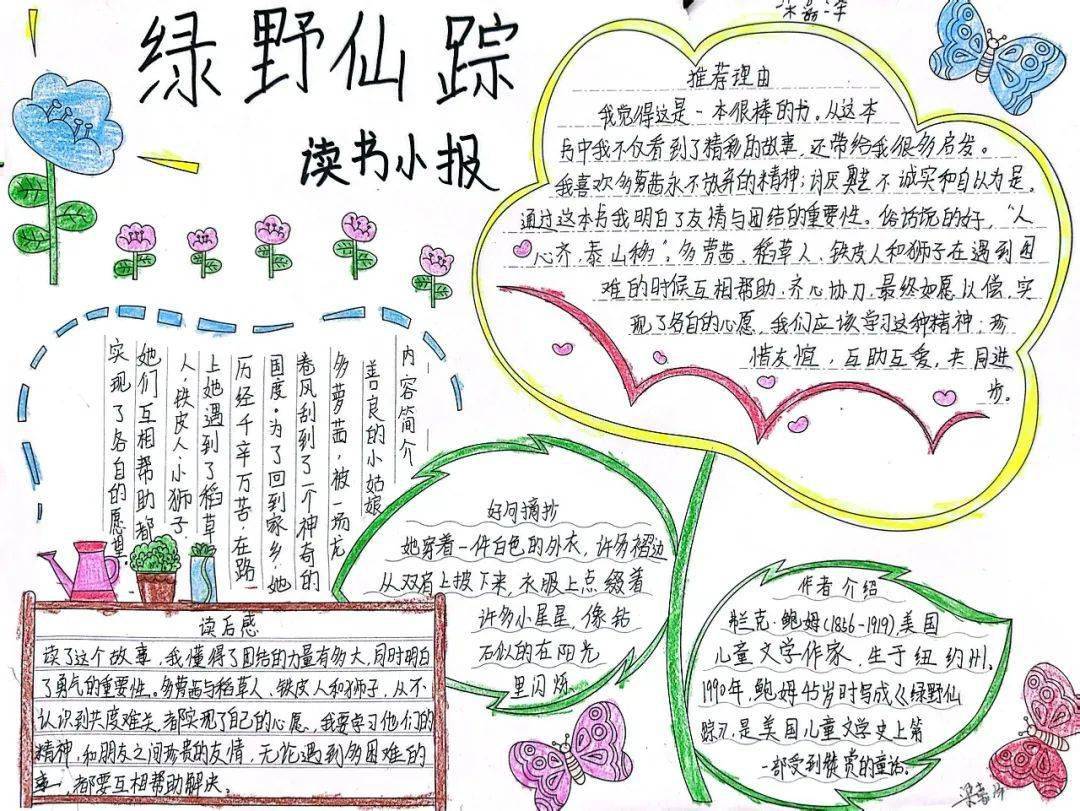 绿野仙踪
读书小报
推荐理由
我觉得这是一本很棒的书。从这本
书中我不仅看到了精彩的故事,还带给我很多启发。
我喜欢多萝茜永不放弃的精神;讨厌奥芝不诚实和自以为是。
通过这本书我明白了友情与团结的重要性。俗话说的好,“人
心齐,泰山移”。多萝茜、稻草人、铁皮人和狮子在遇到困
难的时候互相帮助,齐心协力,最终如愿以偿,实
现了各自的心愿,我们应该学习这种精神;珍
惜友谊,互助互爱,共同进
步。
内容简介
善良的小姑娘
多萝茜,被一场龙
卷风刮到了一个神奇的
国度。为了回到家乡,她
历经千辛万苦。在路
上她遇到了稻草
人、铁皮人、小狮子,
她们互相帮助都
实现了各自的愿望。
好句摘抄
她穿着一件白色的外衣,许多褶边
从双肩上披下来,衣服上点缀着
许多小星星,像钻
石似的在阳光
里闪烁
读后感
读了这个故事,我懂得了团结的力量有多大,同时明白
了勇气的重要性。多萝茜与稻草人、铁皮人和狮子,从不
认识到共度难关,都实现了自己的心愿,我要学习他们的
精神,和朋友之间珍贵的友情,无论遇到多困难的
事,都要互相帮助解决。
作者介绍
兰克·鲍姆(1856-1919),美国
儿童文学作家,生于纽约州,
1990年,鲍姆45岁时写成《绿野仙
踪》,是美国儿童文学史上第
一部受到赞赏的童话。